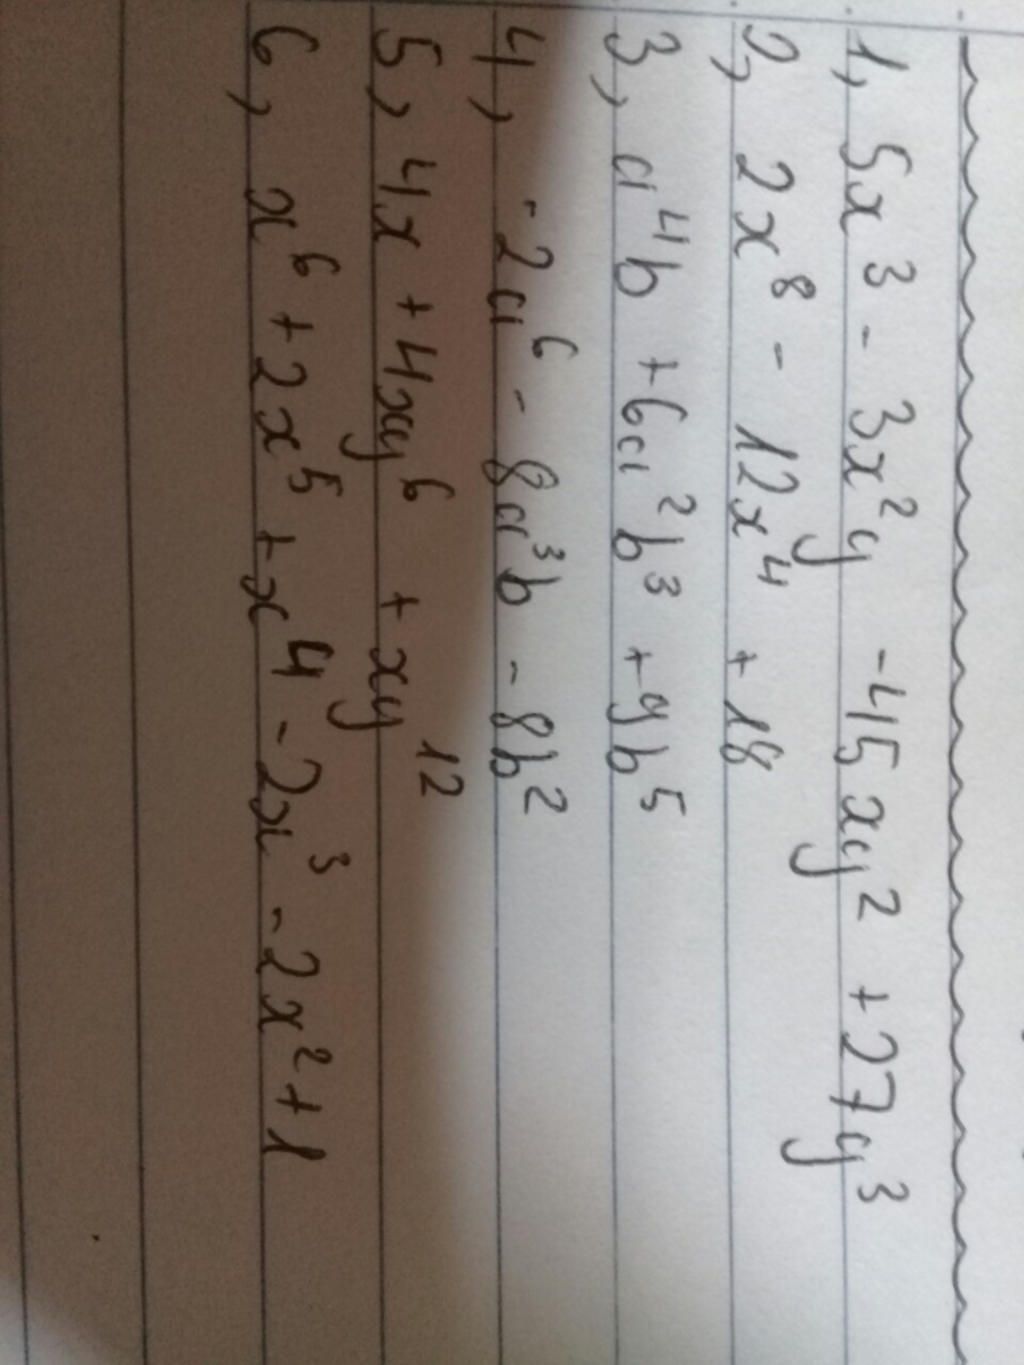 1, 5x³ - 3x²y - 45xy² + 27y³
2, 2x⁸ - 12x⁴ + 18
3, a⁴b + 6a²b³ + 9b⁵
4, -2a⁶ - 8a³b - 8b²
5, 4x + 4xy⁶ + xy¹²
6, x⁶ + 2x⁵ + x⁴ - 2x³ - 2x² + 1